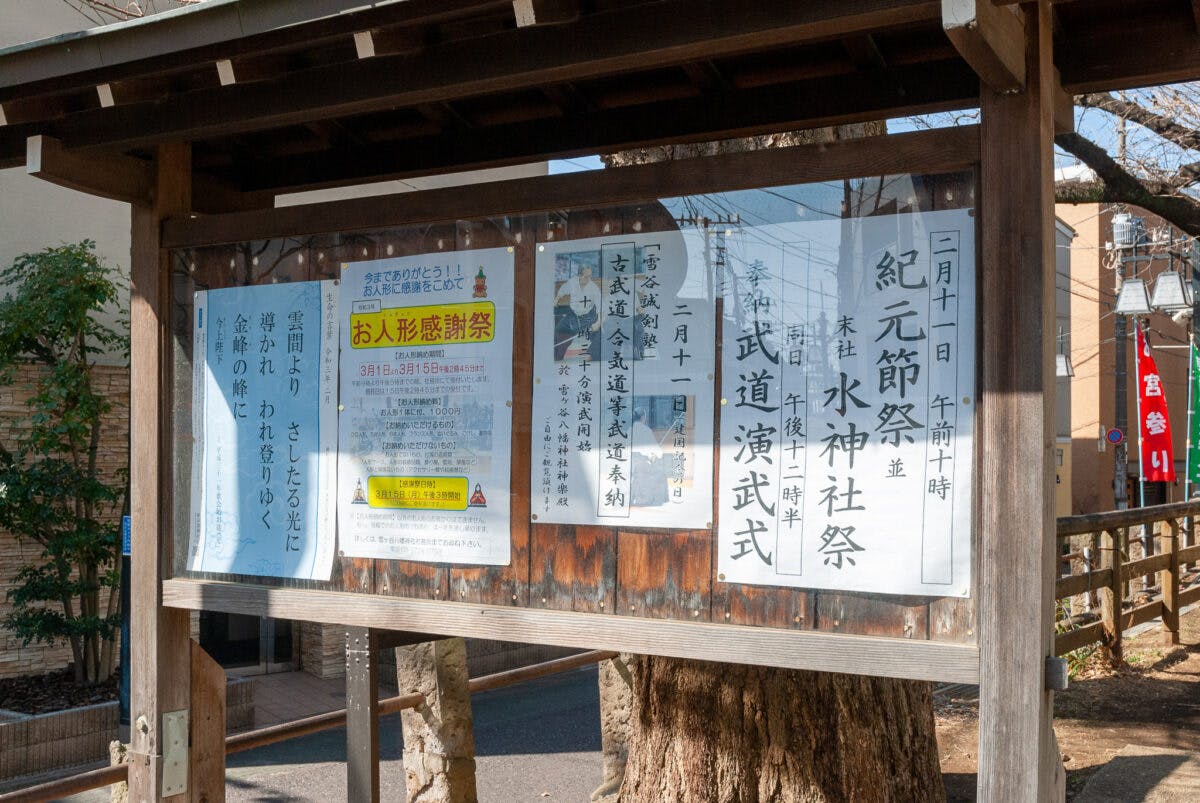 二月十一日 午前十時
紀元節祭 並
末社 水神社祭
同日 午後十二時半
奉納 武道演武式
二月十一日(建国記念の日)
「雪谷誠剣塾」
古武道・合気道等武道奉納
十二時三十分演武開始
於 雪ケ谷八幡神社神楽殿
ご自由にご観覧頂けます
今までありがとう!!
お人形に感謝をこめて
令和3年
お人形感謝祭
【お人形納め期間】
3月1日より3月15日午後2時45分まで
【お人形納め料】
お人形1体に付、1000円
【お納めいただけるもの】
【お納めいただけないもの】
【感謝祭日時】
3月15日(月)午後3時開始
生命の言葉 令和三年二月
雲間より さしたる光に
導かれ われ登りゆく
金峰の峰に
今上陛下
宮参り